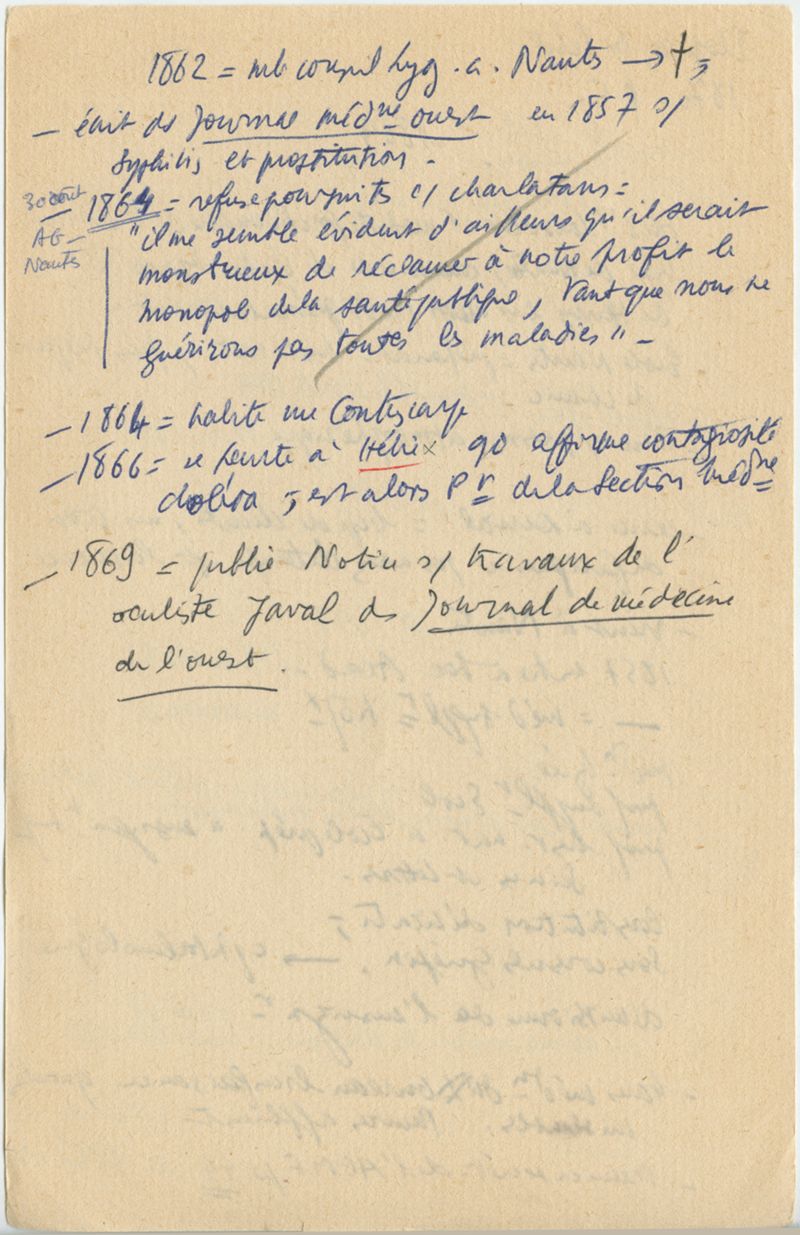 1862 = mb conseil hyg. a. Nantes → †,
— écrit ds Journal médne ouest en 1857 s/
syphilis et prostitution -
30 août
AG-
Nantes
— 1864 = refuse poursuites c/ charlatans =
"il me semble évident d'ailleurs qu'il serait
monstrueux de réclamer à notre profit le
monopole de la santé publique, tant que nous ne
guérirons pas toutes les maladies" -
— 1864 = habite rue Contescarpe
— 1866 = se heurte à Hélie x qd affirme contagiosité
choléra ; est alors Pr de la Section médne
— 1869 = publie Notice s/ travaux de l'
oculiste Javal ds Journal de médecine
de l'ouest.